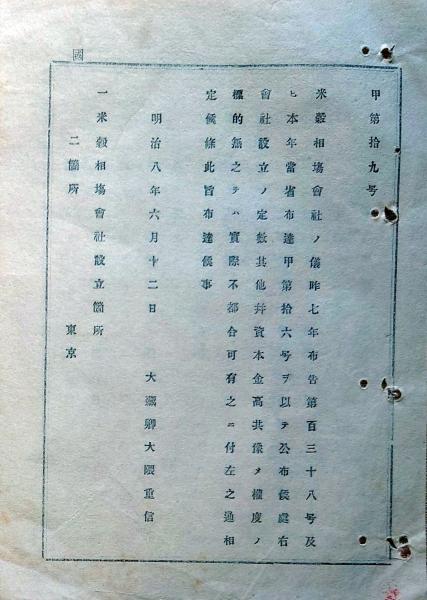 甲第拾九号
米穀相塲會社ノ儀昨七年布告第百三十八号及
ヒ本年當省布達甲第拾六号ヲ以テ公布候處右
會社設立ノ定數其他并資本金高共豫メ權度ノ
標的無之テハ實際不都合可有之ニ付左之通相
定候條此旨布達候事
明治八年六月十二日 大藏卿大隈重信
一米穀相塲會社設立箇所
二箇所 東京
國